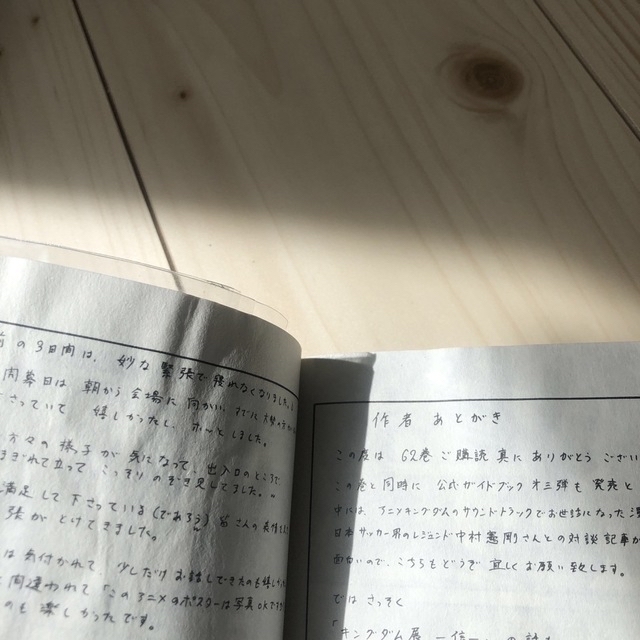 前の3日間は、妙な緊張で寝れなくなりました。
開幕日は朝から会場に向かい、
さっていて 嬉しかったし、ホッとしました。
方々の様子が気になって、出入口のところで
まぎれて立って こっそり のぞき見してました。
満足して下さっている(であろう)皆さんの表情を
張がとけてきました。
は気付かれて、少しだけお話しできたのも嬉し
間違われて「このアニメのポスターは写真OKですか
のも楽しかったです。
作者あとがき
この度は 62巻ご購読 真に ありがとう ござい
この巻と同時に 公式ガイドブック 才三弾も 発売と
中には、アニメキングダムのサウンドトラックでお世話になった澤
日本サッカー界のレジェンド中村憲剛さんとの対談記事が
面白いので、こちらもどうぞ宜しくお願い致します。
では さっそく
「キングダム展 ー信ー